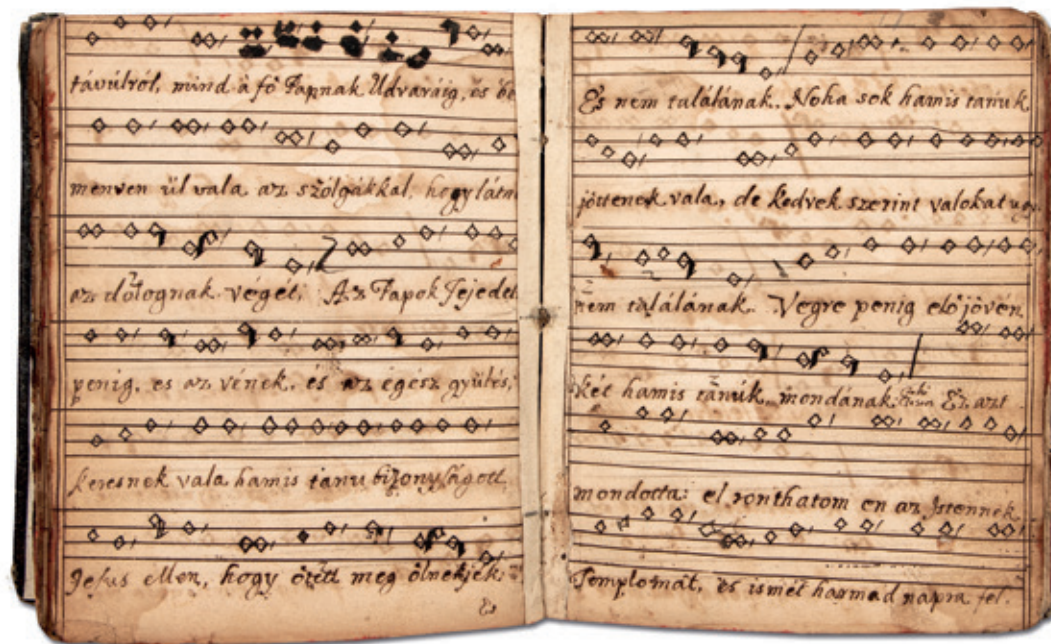 távúlról, mind à fő Papnak Udvaráig, és be
menvén ül vala az szolgákkal, hogy látná
az dolognak végét; Az Papok Fejedel
penig, es az vének, és az egész gyütés,
keresnek vala hamis tanu bizonyságott
Jesus ellen, hogy őtett meg ölnékjék:
És
És nem találának. Noha sok hamis tanuk
jöttenek vala, de kedvek szerint valokat ugy
nem találának. Vegre penig elö jövén
két hamis tanúk, mondának: Ez azt
mondotta: el ronthatom en az Istennek
Templomát, es ismét harmad napra fel.